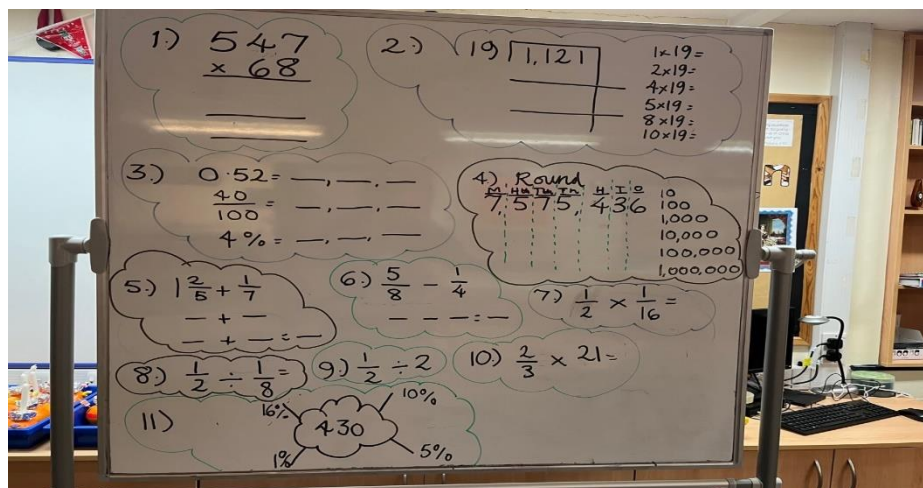 1.) 547
x 68
2.) 19 1,121
1x19=
2x19=
4x19=
5x19=
8x19=
10x19=
3.) 0.52 = _, _. _
40/100 = _, _, _
4% = _, _, _
4) Round
M HTh TTh Th H T O
7, 5 7 5, 4 3 6
10
100
1,000
10,000
100,000
1,000,000
5.) 1 2/5 + 1/7
_ + _
_ + _ = _
6.) 5/8 - 1/4
_ - _ = _
7.) 1/2 x 1/16 =
8.) 1/2 ÷ 1/8 =
9.) 1/2 ÷ 2
10.) 2/3 x 21=
11) 430
16%
10%
1%
5%